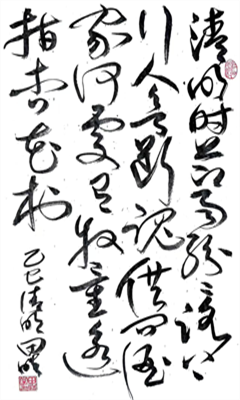 清明时节雨纷纷路上
行人欲断魂借问酒
家何处有牧童遥
指杏花村
乙巳清明